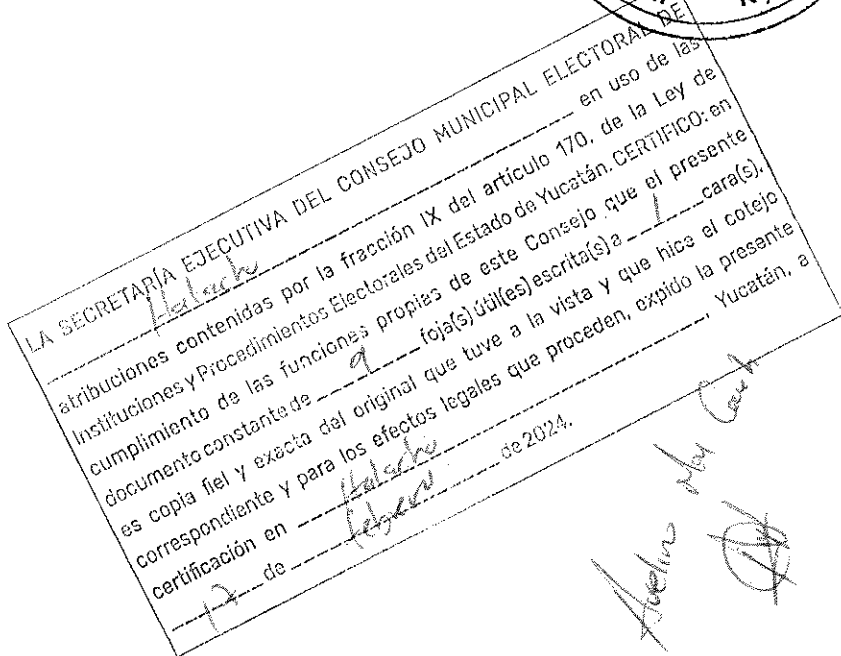 LA SECRETARÍA EJECUTIVA DEL CONSEJO MUNICIPAL ELECTORAL DE
Halacho en uso de las
atribuciones contenidas por la fracción IX del artículo 170, de la Ley de
Instituciones y Procedimientos Electorales del Estado de Yucatán. CERTIFICO: en
cumplimiento de las funciones propias de este Consejo que el presente
documento constante de 9 foja(s) útil(es) escrita(s) a 1 cara(s),
es copia fiel y exacta del original que tuve a la vista y que hice el cotejo
correspondiente y para los efectos legales que proceden, expido la presente
certificación en Halacho Yucatán, a
17 de febrero de 2024.